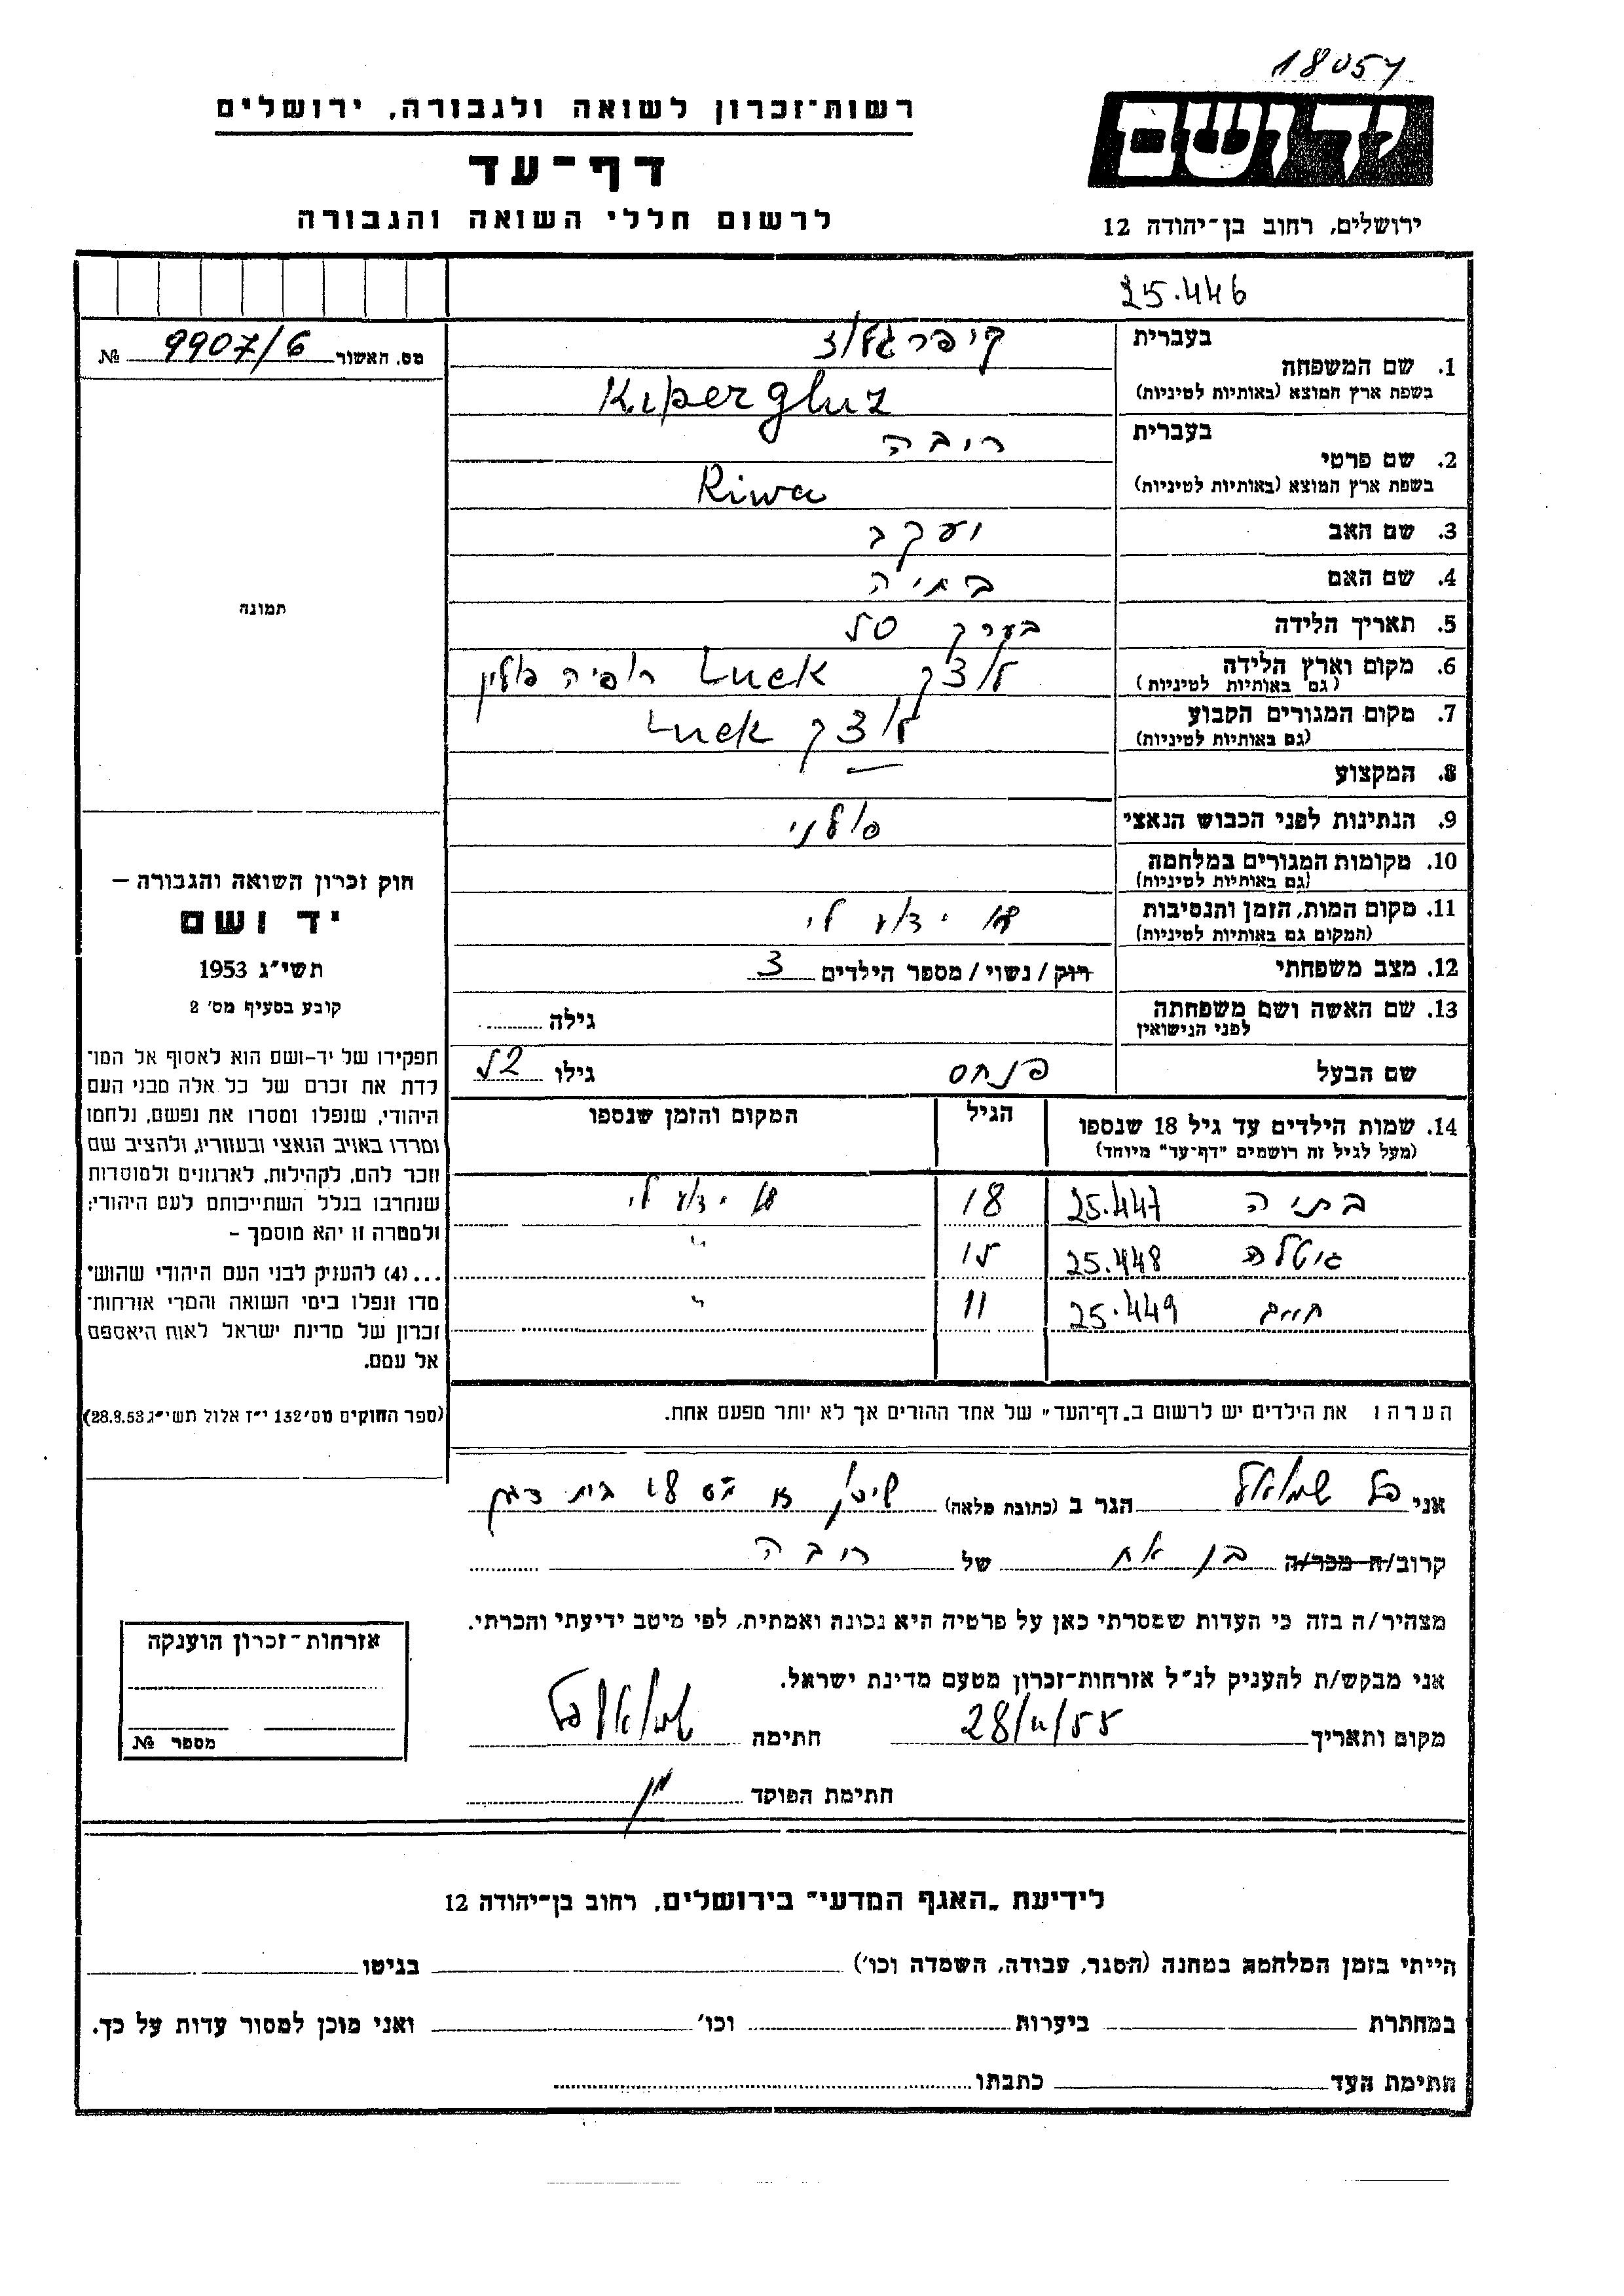 18057
יד ושם
רשות־זכרון לשואה ולגבורה, ירושלים
דף־עד
לרשום חללי השואה והגבורה
ירושלים, רחוב בן־יהודה 12
25.446
מס. האשור 9907/6 №
תמונה
חוק זכרון השואה והגבורה –
יד ושם
תשי״ג 1953
קובע בסעיף מס׳ 2
תפקידו של יד-ושם הוא לאסוף אל המו־
לדת את זכרם של כל אלה מבני העם
היהודי, שנפלו ומסרו את נפשם, נלחמו
ומרדו באויב הנאצי ובעוזריו, ולהציב שם
וזכר להם, לקהילות, לארגונים ולמוסדות
שנחרבו בגלל השתייכותם לעם היהודי;
ולמטרה זו יהא מוסמך –
...(4) להעניק לבני העם היהודי שהוש־
מדו ונפלו בימי השואה והמרי אזרחות־
זכרון של מדינת ישראל לאות היאספם
אל עמם.
(ספר החוקים מס׳ 132 י״ז אלול תשי״ג 28.8.53)
בעברית קיפרגלוז
1. שם המשפחה
בשפת ארץ המוצא (באותיות לטיניות) Kipergluz
בעברית ריבה
2. שם פרטי
בשפת ארץ המוצא (באותיות לטיניות) Riwa
3. שם האב יעקב
4. שם האם בתיה
5. תאריך הלידה בערך 50
6. מקום וארץ הלידה לוצק Luck פולין
(גם באותיות לטיניות)
7. מקום המגורים הקבוע לוצק Luck
(גם באותיות לטיניות)
8. המקצוע —
9. הנתינות לפני הכבוש הנאצי פולני
10. מקומות המגורים במלחמה
(גם באותיות לטיניות)
11. מקום המות, הזמן והנסיבות לא ידוע לי
(המקום גם באותיות לטיניות)
12. מצב משפחתי רווק / נשוי / מספר הילדים 3
13. שם האשה ושם משפחתה גילה
לפני הנישואין
שם הבעל פנחס גילו 52
14. שמות הילדים עד גיל 18 שנספו הגיל המקום והזמן שנספו
(מעל לגיל זה רושמים "דף־עד" מיוחד)
בתיה 25.447 18 לא ידוע לי
גיטלה 25.448 15 "
חיים 25.449 11 "
הערה ו את הילדים יש לרשום ב„דף־העד" של אחד ההורים אך לא יותר מפעם אחת.
אני פל שמואל הגר ב (כתובת מלאה) שיכון א בית דגן
קרוב/ה מכר/ה בן אח של ריבה
מצהיר/ה בזה כי העדות שמסרתי כאן על פרטיה היא נכונה ואמתית, לפי מיטב ידיעתי והכרתי.
אני מבקש/ת להעניק לנ״ל אזרחות־זכרון מטעם מדינת ישראל.
מקום ותאריך 28/11/55 חתימה שמואל פל
חתימת הפוקד
אזרחות־זכרון הוענקה
מספר №
לידיעת „האגף המדעי" בירושלים, רחוב בן־יהודה 12
הייתי בזמן המלחמה במחנה (הסגר, עבודה, השמדה וכו׳) בגיטו
במחתרת ביערות וכו׳ ואני מוכן למסור עדות על כך.
חתימת העד כתבתו